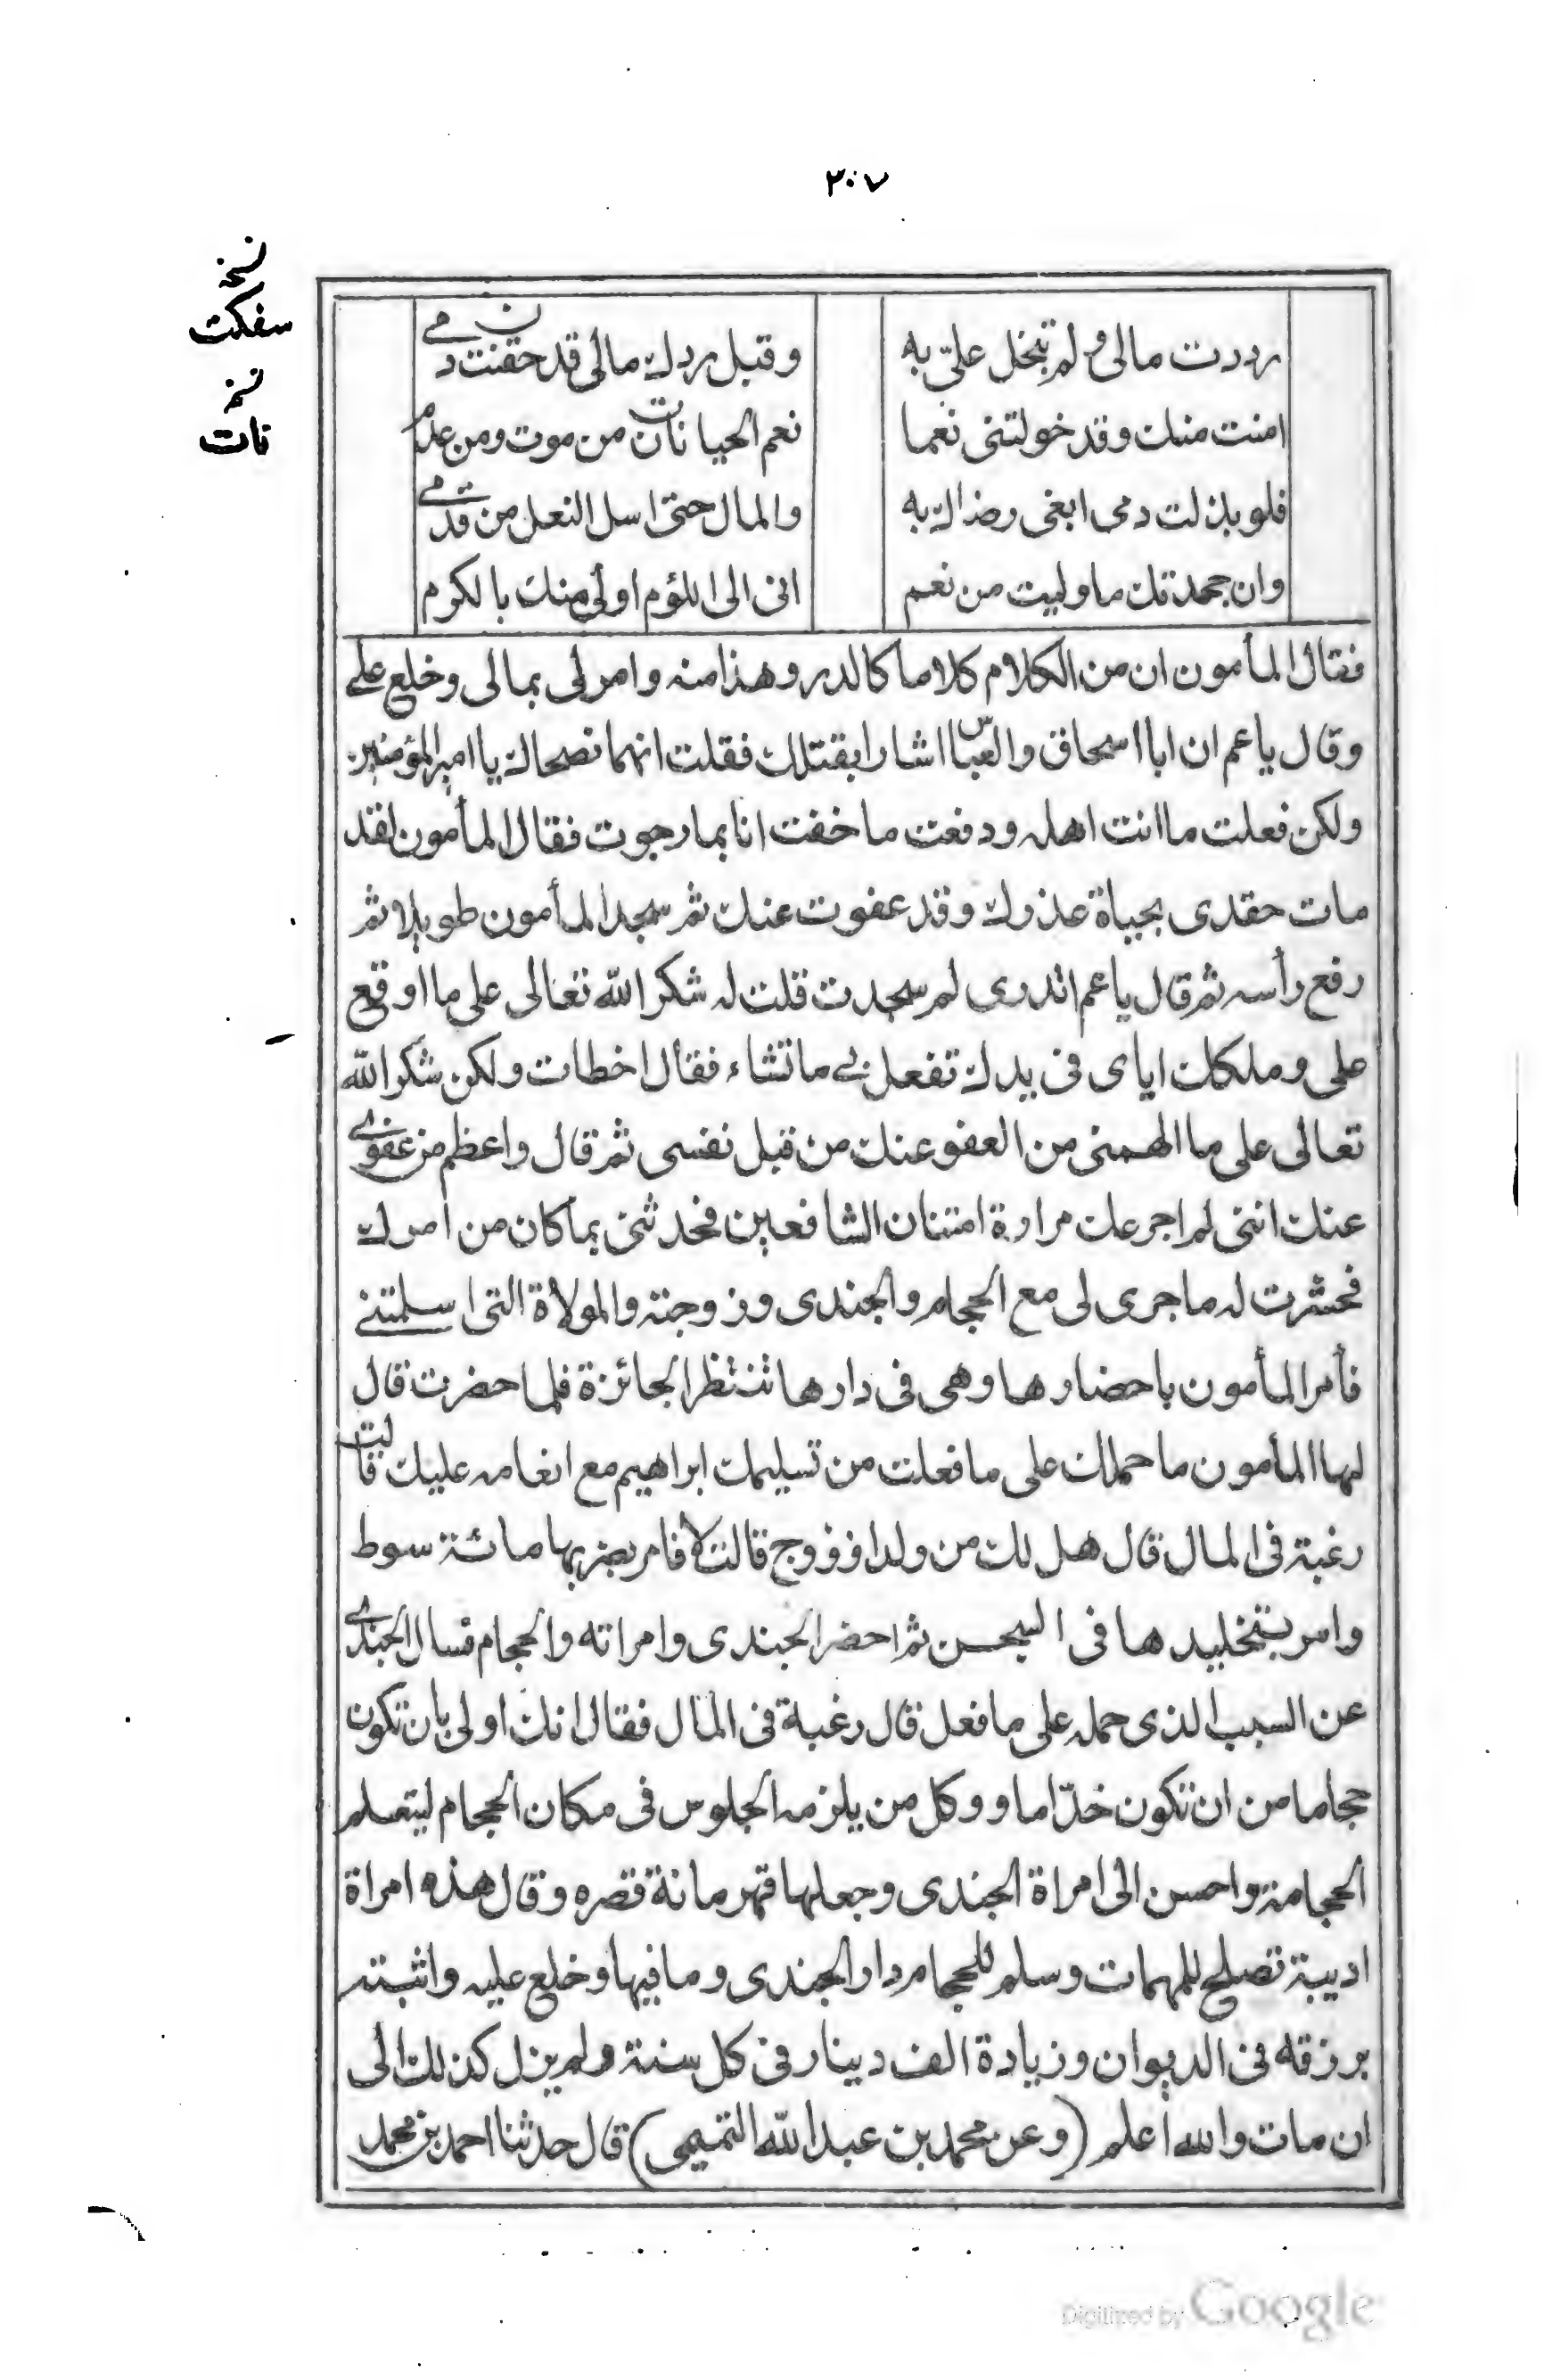 ٣٠٧
نسخه
سفكت
نسخه
فات
رددت مالى ولم تبخل علىّ به وقبل ردك مالى قد حقنت دمى
امنت منك وقد خولتنى نعما نعم الحياتان من موت ومن عدم
فلو بذلت دمى ابغى رضاك به والمال حتى اسل النعل من قدمى
وان جحدتك ماوليت من نعم انى الى اللؤم اولى منك بالكرم
فقال المأمون ان من الكلام كلاما كالدر وهذا منه وامر لى بمالى وخلع على
وقال ياعم ان ابا اسحاق والعباس اشارا بقتلك فقلت انهما نصحاك يا امير المؤمنين
ولكن فعلت ما انت اهله ودفعت ما خفت انا بما رجوت فقال المأمون لقد
مات حقدى بحياة عذرك وقد عفوت عنك ثم سجد المأمون طويلا ثم
رفع رأسه ثم قال ياعم اتدرى لم سجدت قلت له شكرا لله تعالى على ما اوقع
على وملكك اياى فى يدك تفعل بى ما تشاء فقال اخطات ولكن شكرا لله
تعالى على ما الهمنى من العفو عنك من قبل نفسى ثم قال واعظم من عفوى
عنك اننى لم اجرعك مرارة امتنان الشافعين فحدثنى بما كان من امرك
فحشرت له ماجرى لى مع الحجام والجندى وزوجته والمولاة التى اسلمتنى
فأمر المأمون باحضارها وهى فى دارها تنتظر الجائزة فلما حضرت قال
لها المأمون ما حملك على مافعلت من تسليمك ابراهيم مع انعامه عليك قالت
رغبة فى المال قال هل لك من ولد او زوج قالت لا فامر بضربها مائة سوط
وامر بتخليدها فى السجن ثم احضر الجندى وامراته والحجام فسال الجندى
عن السبب الذى حمله على ما فعل قال رغبة فى المال فقال انك اولى بان تكون
حجاما من ان تكون خدّاما ووكل من يلزمه الجلوس فى مكان الحجام ليتعلم
الحجامة واحسن الى امراة الجندى وجعلها قهرمانة قصره وقال هذه امراة
اديبة تصلح للمهمات وسلم للحجام دار الجندى وما فيها وخلع عليه واثبته
برزقه فى الديوان وزيادة الف دينار فى كل سنة ولم يزل كذلك الى
ان مات والله اعلم (وعن محمد بن عبد الله التميمى) قال حدثنا احمد بن محمد
Digitized by Google